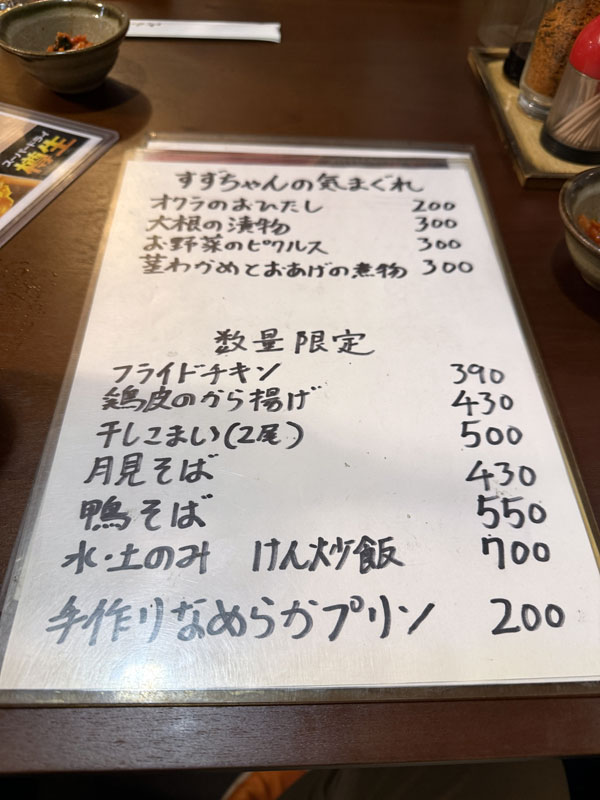 スーパードライ
樽生
すずちゃんの気まぐれ
オクラのおひたし 200
大根の漬物 300
お野菜のピクルス 300
茎わかめとおあげの煮物 300
数量限定
フライドチキン 390
鶏皮のから揚げ 430
干しこまい(2尾) 500
月見そば 430
鴨そば 550
水・土のみ けん炒飯 700
手作りなめらかプリン 200